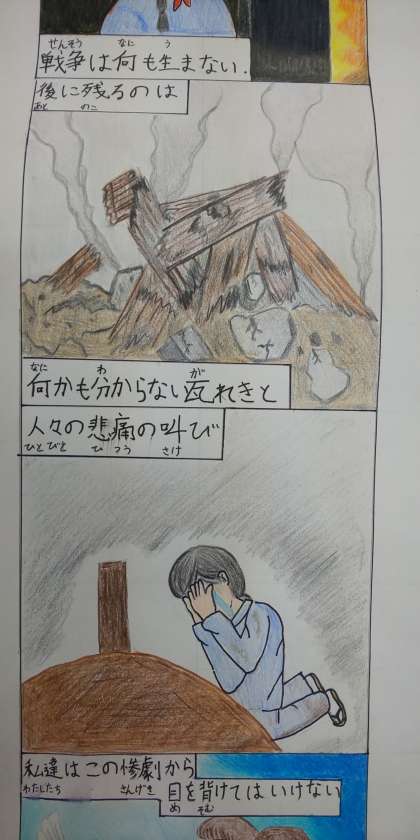 せんそう なに う
戦争は何も生まない.
後に残るのは
あと のこ
なに わ が
何かも分からない瓦れきと
人々の悲痛の叫び
ひとびと ひ つう さけ
私達はこの惨劇から
わたしたち さんげき
目を背けてはいけない
め そむ